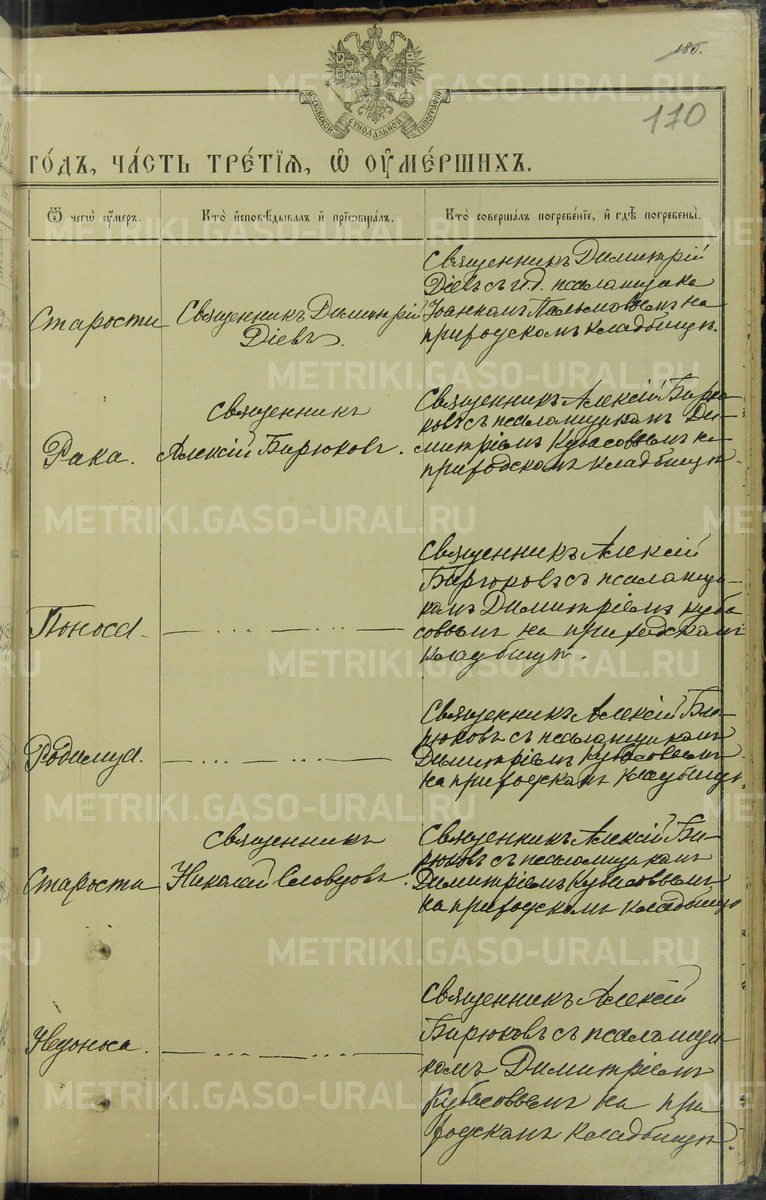 185.
170
МОСКОВСКОЙ СѴНОДАЛЬНОЙ ТИПОГРАФІИ
ГО́ДЪ, ЧА́СТЬ ТРЕ́ТІЯ, Ѡ҆ ОУ҆МЕ́РШИХЪ.
Ѿ чегѡ̀ оу҆́меръ.
Кто̀ и҆сповѣ́дывалъ и҆ приѡбща́лъ.
Кто̀ соверша́лъ погребе́нїе, и҆ гдѣ̀ погребены̀.
Старости
Священникъ Димитрій
Діевъ.
Священникъ Димитрій
Діевъ с
псаломщика
Іоанномъ Пальмовымъ на
приходскомъ кладбищѣ.
Рака.
Священникъ
Алексій Бирюковъ.
Священникъ Алексій Бирю-
ковъ съ псаломщикомъ Ди-
митріемъ Кубасовымъ на
приходскомъ кладбищѣ.
Поноса.
Священникъ Алексій
Бирюковъ съ псаломщи-
комъ Димитріемъ Куба
совымъ на приходскомъ
кладбищѣ.
Родимца.
Священникъ Алексій Би-
рюковъ съ псаломщикомъ
Димитріемъ Кубасовымъ
на приходскомъ кладбищѣ.
Старости
Священникъ
Николай Словцовъ.
Священникъ Алексій Би-
рюковъ съ псаломщикомъ
Димитріемъ Кубасовымъ
на приходскомъ кладбищѣ
Недоноса.
Священникъ Алексій
Бирюковъ съ псаломщи-
комъ Димитріемъ
Кубасовымъ на при
ходскомъ кладбищѣ.
METRIKI.GASO-URAL.RU